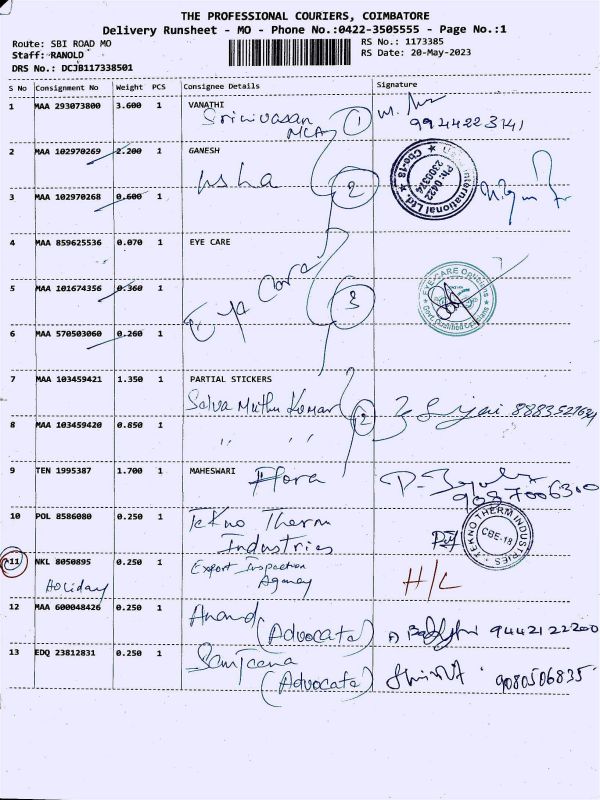 THE PROFESSIONAL COURIERS, COIMBATORE
Delivery Runsheet - MO - Phone No.:0422-3505555 - Page No.:1
Route: SBI ROAD MO RS No.: 1173385
Staff: RANOLD RS Date: 20-May-2023
DRS No.: DCJB117338501
S No Consignment No Weight PCS Consignee Details Signature
1 MAA 293073800 3.600 1 VANATHI
Srinivasan MCA 1 9944223141
2 MAA 102970269 2.200 1 GANESH
Usha 2
Ph: 0422 International Ltd. Cbe-18
3 MAA 102970268 0.600 1
4 MAA 859625536 0.070 1 EYE CARE
5 MAA 101674356 0.360 1
Eye Care 3 EYE CARE Opticians
Govt. Qualified Opticians
6 MAA 570503060 0.260 1
7 MAA 103459421 1.350 1 PARTIAL STICKERS
Selva Muthu Kumar 2
8 MAA 103459420 0.850 1
" "
9 TEN 1995387 1.700 1 MAHESWARI
Flora 9087006300
10 POL 8586080 0.250 1 Tekno Therm
Industries TEKNO THERM INDUSTRIES CBE-18
11 NKL 8050895 0.250 1 Export Inspection
Holiday Agency H/L
12 MAA 600048426 0.250 1 Anand
(Advocate) 9442122200
13 EDQ 23812831 0.250 1 Sanjeena
(Advocate) 9080506835